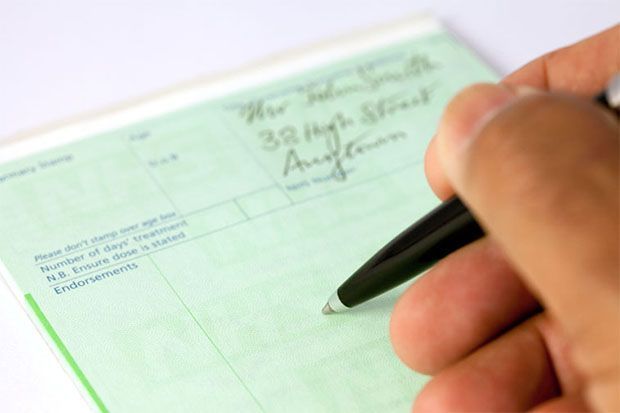 rmacy Stamp
Age
D.o.B
Mr John Smith
38 High Street
Anytown
Please don't stamp over age box
Number of days' treatment
N.B. Ensure dose is stated
Endorsements